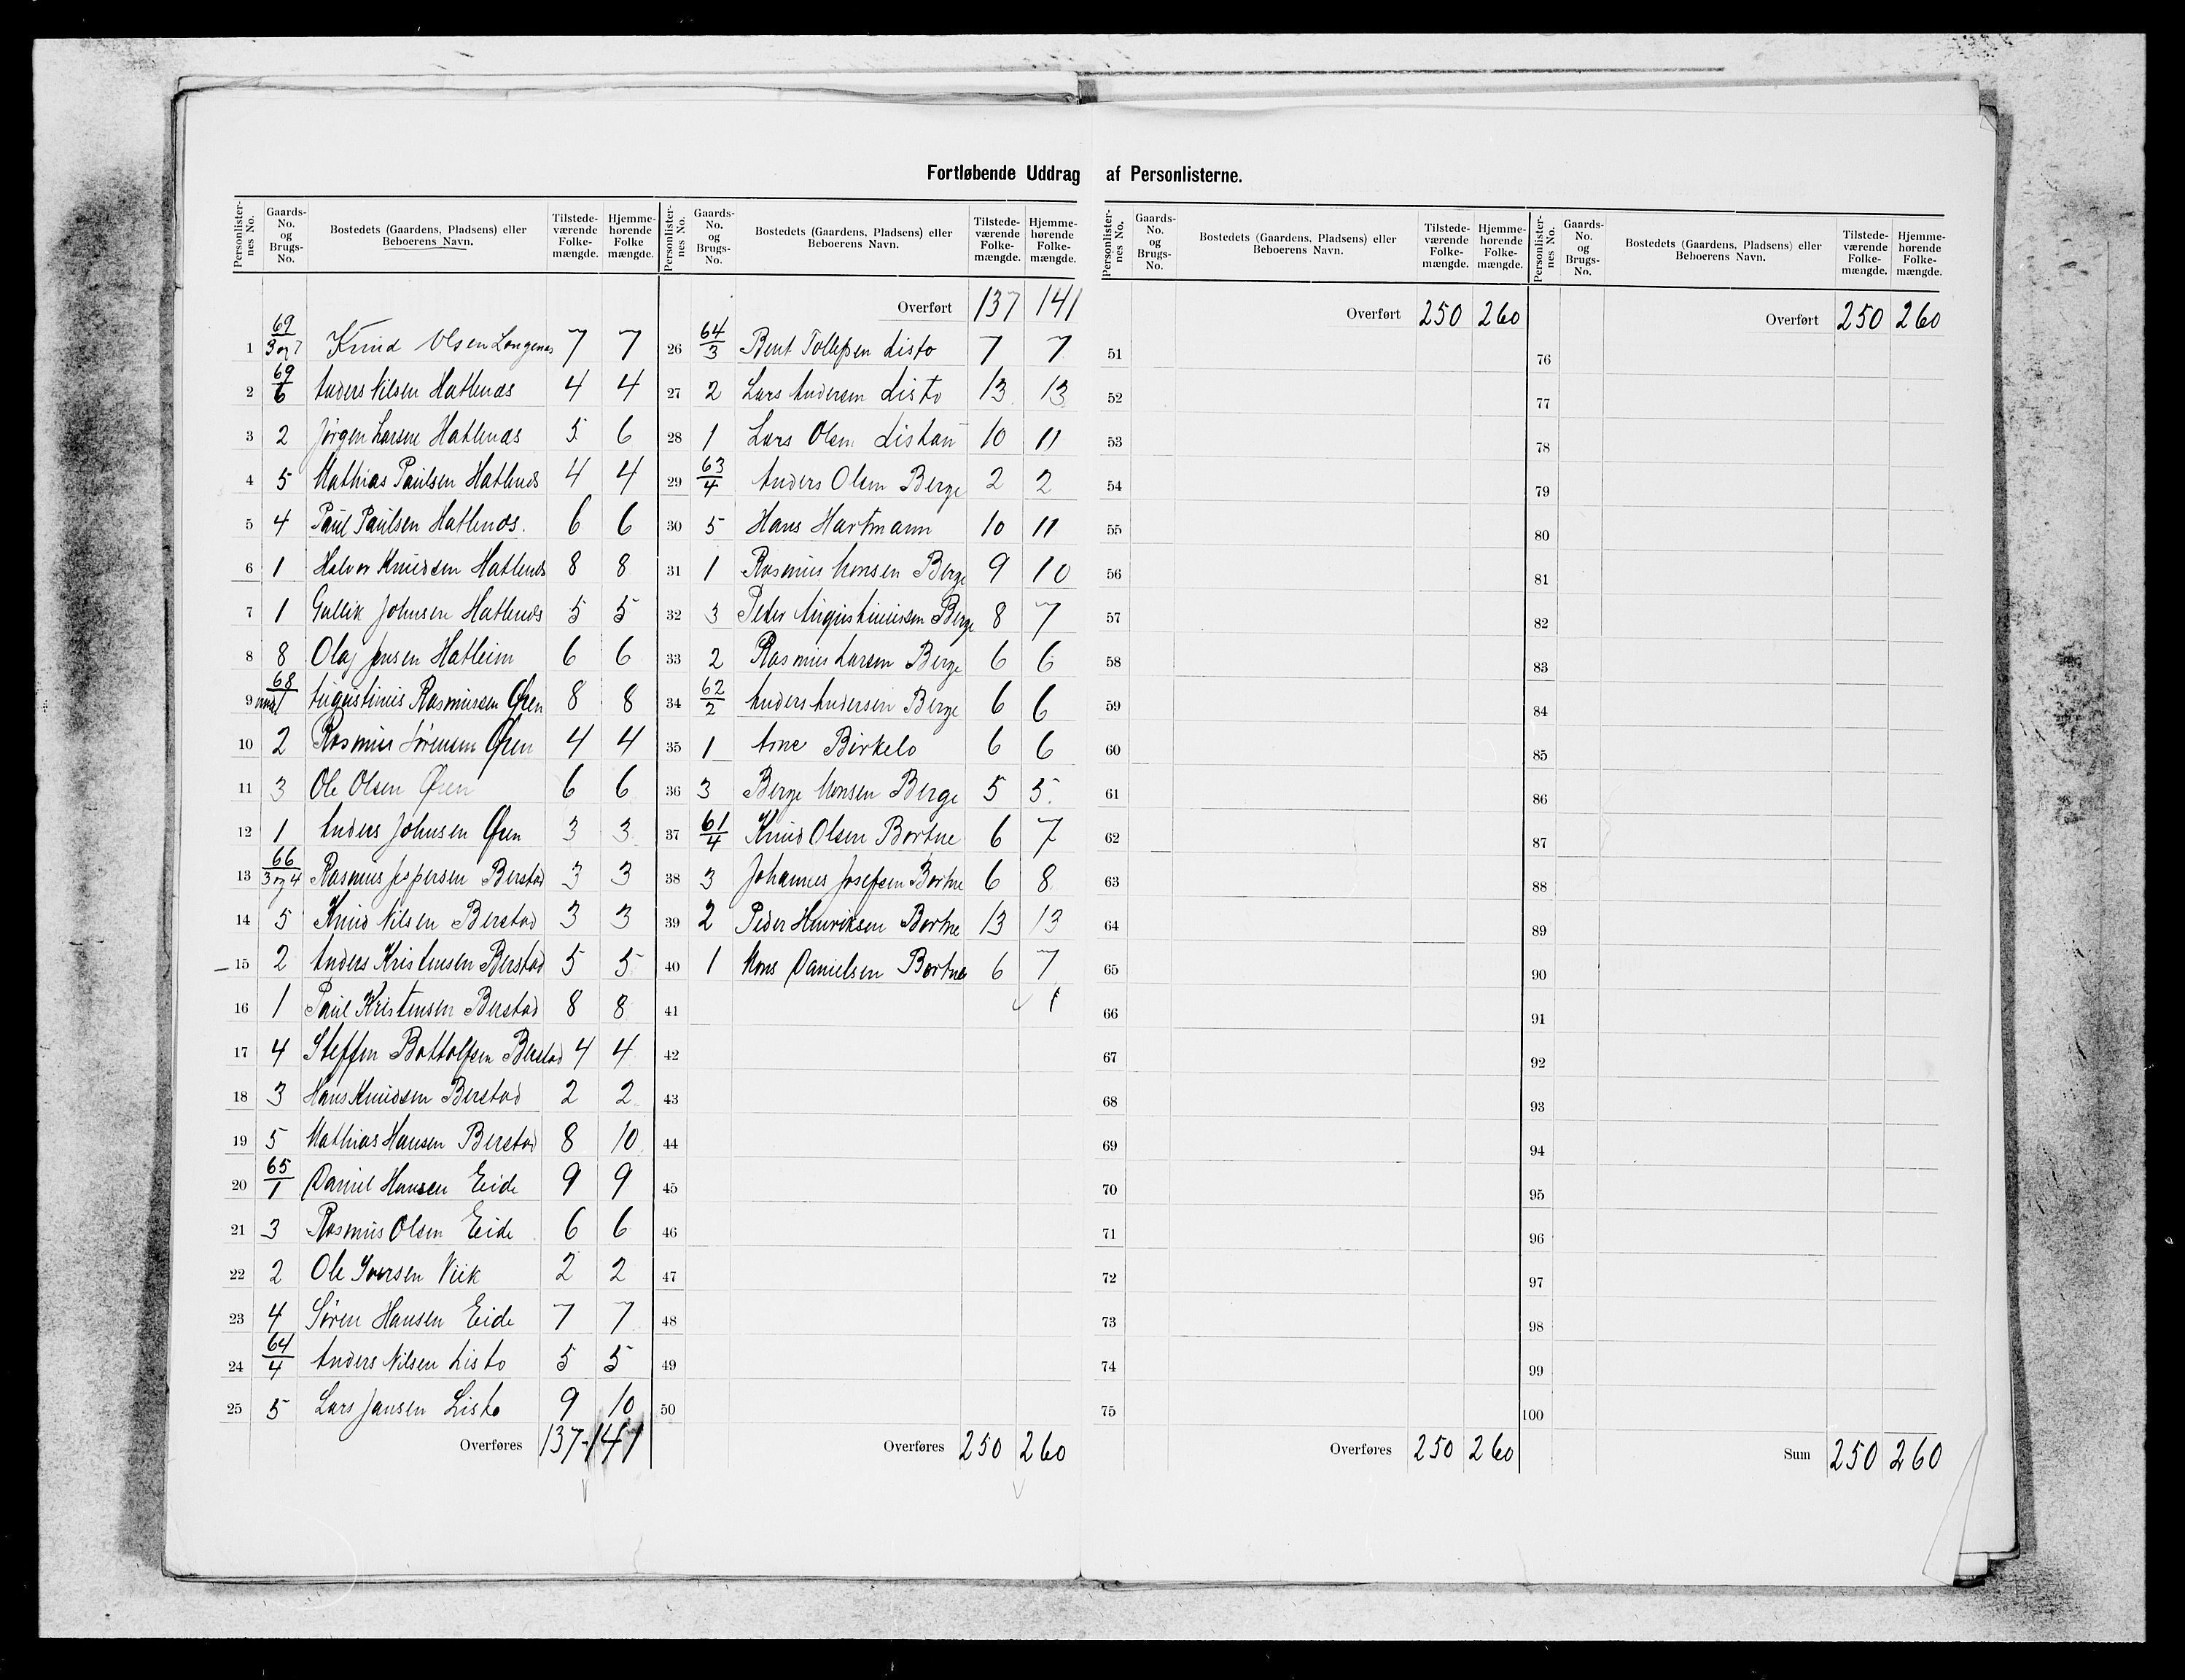 Fortløbende Uddrag af Personlisterne.
Personlisternes No. Gaards-No. og Brugs-No. Bostedets (Gaardens, Pladsens) eller Beboerens Navn. Tilstedeværende Folkemængde. Hjemmehørende Folkemængde.
1 69/3 og 7 Knud Olsen Longenes 7 7
2 69/6 Anders Nilsen Hatlenæs 4 4
3 2 Jørgen Larsen Hatlenæs 5 6
4 5 Mathias Paulsen Hatlenæs 4 4
5 4 Paul Paulsen Hatlenæs. 6 6
6 1 Halvor Knudsen Hatlenæs 8 8
7 1 Gullik Johnsen Hatlenæs 5 5
8 8 Olaj Jensen Hatleim 6 6
9 68/1 Augustinus Rasmussen Øren 8 8
10 2 Rasmus Sørensen Øren 4 4
11 3 Ole Olsen Øren 6 6
12 1 Anders Johnsen Øren 3 3
13 66/3 og 4 Rasmus Jespersen Berstad 3 3
14 5 Knud Nilsen Berstad 3 3
15 2 Anders Kristensen Berstad 5 5
16 1 Paul Kristensen Berstad 8 8
17 4 Steffen Bottolfsen Berstad 4 4
18 3 Hans Knudsen Berstad 2 2
19 5 Mathias Hansen Berstad 8 10
20 65/1 Daniel Hansen Eide 9 9
21 3 Rasmus Olsen Eide 6 6
22 2 Ole Iversen Viik 2 2
23 4 Søren Hansen Eide 7 7
24 64/4 Anders Nilsen Listo 5 5
25 5 Lars Jansen Listo 9 10
Overføres 137 141
Personlisternes No. Gaards-No. og Brugs-No. Bostedets (Gaardens, Pladsens) eller Beboerens Navn. Tilstedeværende Folkemængde. Hjemmehørende Folkemængde.
Overført 137 141
26 64/3 Bent Tollefsen Listo 7 7
27 2 Lars Andersen Listo 13 13
28 1 Lars Olsen Listau 10 11
29 63/4 Anders Olsen Berge 2 2
30 5 Hans Hartmann 10 11
31 1 Rasmus Monsen Berge 9 10
32 3 Peder Augustinussen Berge 8 7
33 2 Rasmus Larsen Berge 6 6
34 62/2 Anders Andersen Berge 6 6
35 1 Arne Birkelo 6 6
36 3 Berge Monsen Berge 5 5.
37 61/4 Knud Olsen Bortne 6 7
38 3 Johannes Josefsen Bortne 6 8
39 2 Peder Henriksen Bortne 13 13
40 1 Mons Danielsen Bortne 6 7
41 1
42
43
44
45
46
47
48
49
50
Overføres 250 260
Personlisternes No. Gaards-No. og Brugs-No. Bostedets (Gaardens, Pladsens) eller Beboerens Navn. Tilstedeværende Folkemængde. Hjemmehørende Folkemængde.
Overført 250 260
51
52
53
54
55
56
57
58
59
60
61
62
63
64
65
66
67
68
69
70
71
72
73
74
75
Overføres 250 260
Personlisternes No. Gaards-No. og Brugs-No. Bostedets (Gaardens, Pladsens) eller Beboerens Navn. Tilstedeværende Folkemængde. Hjemmehørende Folkemængde.
Overført 250 260
76
77
78
79
80
81
82
83
84
85
86
87
88
89
90
91
92
93
94
95
96
97
98
99
100
Sum 250 260